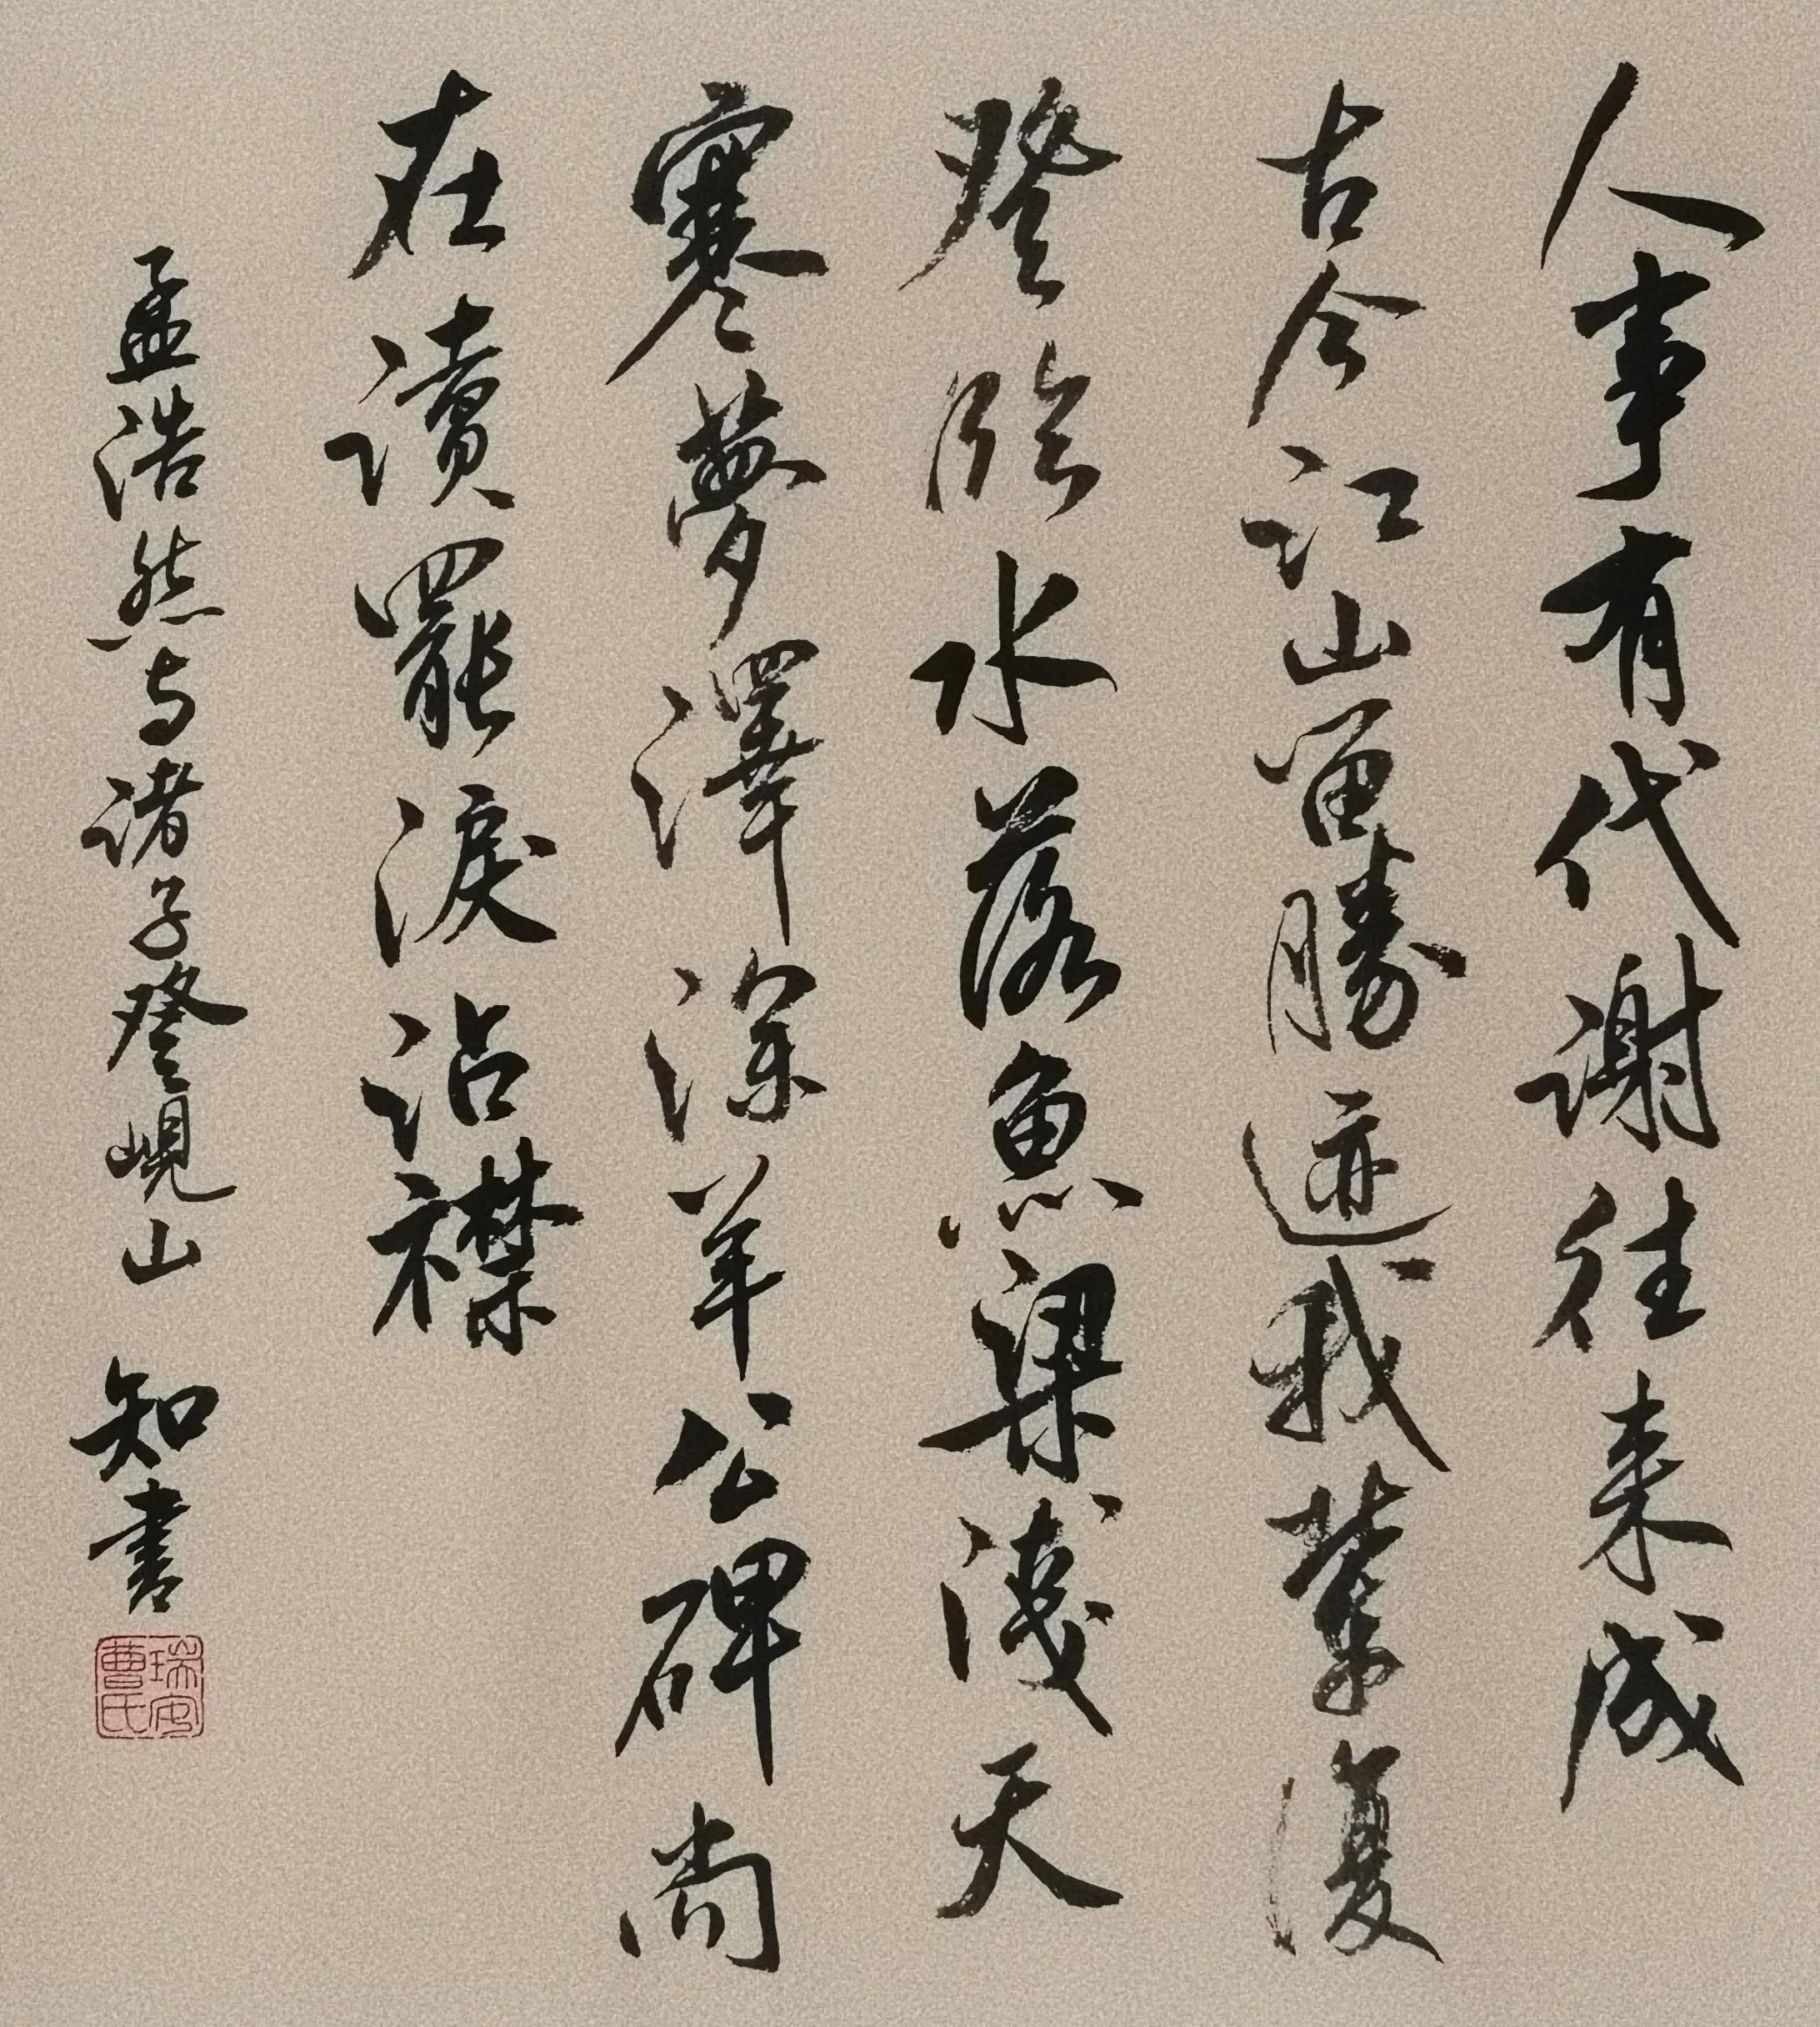 人事有代謝往来成
古今江山留勝迹我輩復
登臨水落魚梁淺天
寒夢澤深羊公碑尚
在讀罷淚沾襟
孟浩然与诸子登峴山 知書
瑞安曹氏